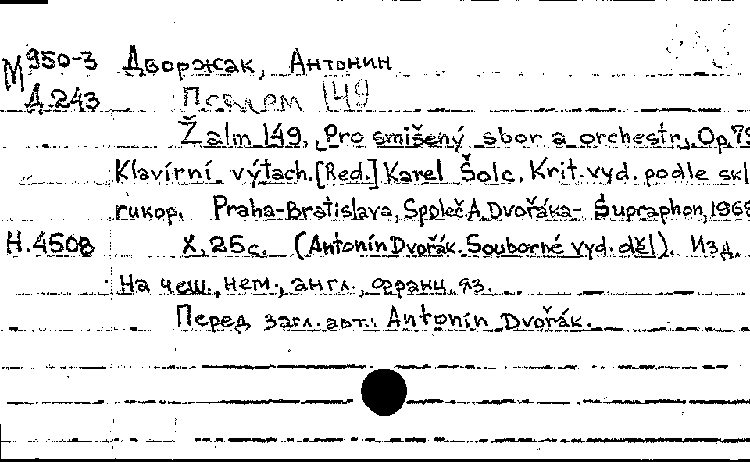 М 950-3 Дворжак, Антонин
Д.243 Псалом 149
Žalm 149. Pro smišený sbor a orchestr. Op. 79
Klavírní výtach. [Red.] Karel Šolc. Krit. vyd. podle skl.
rukop. Praha-Bratislava, Společ. A. Dvořáka - Supraphon, 1968
Н.4508 X, 25 с. (Antonín Dvořák. Souborné vyd. děl). Изд.
На чеш., нем., англ., франц. яз.
Перед загл. авт.: Antonín Dvořák.